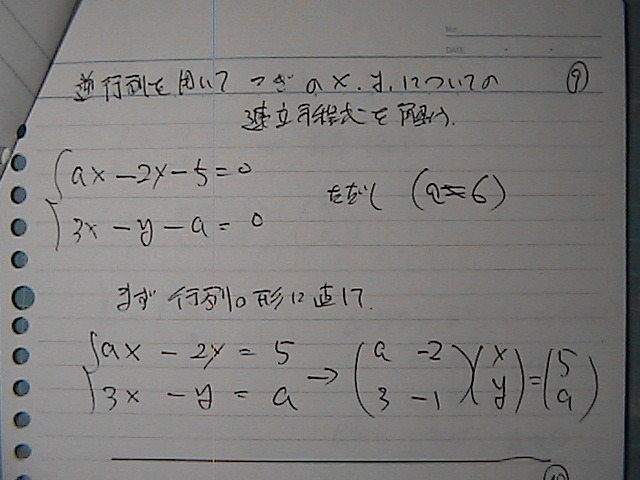 No.
DATE
逆行列を用いて つぎの x, y, についての ⑨
連立方程式を解け.
ax − 2y − 5 = 0
3x − y − a = 0
ただし (a≠6)
まず 行列の形に直して
ax − 2y = 5
3x − y = a
→ (a −2 3 −1)(x y) = (5 a)